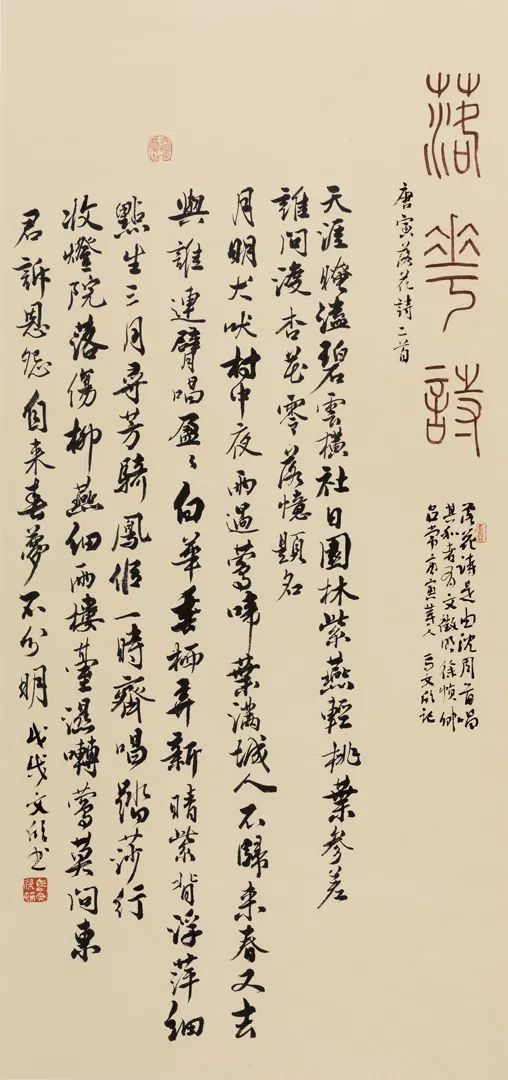 落花詩
唐寅落花詩二首
落花詩是由沈周首唱
其和者有文徵明徐禎卿
呂常唐寅等人 文欣記
天涯晻溘碧雲橫社日園林紫燕輕桃葉參差
誰問渡杏花零落憶題名
月明犬吠村中夜雨過鶯啼葉滿城人不歸来春又去
與誰連臂唱盈〻白華栖弄新晴紫背浮萍細
點生三月尋芳騎鳳侶一時齊唱踏莎行
收燈院落傷柳燕細雨樓臺濕囀鶯莫問東
君訴恩怨自来春夢不分明 戊戌文欣書